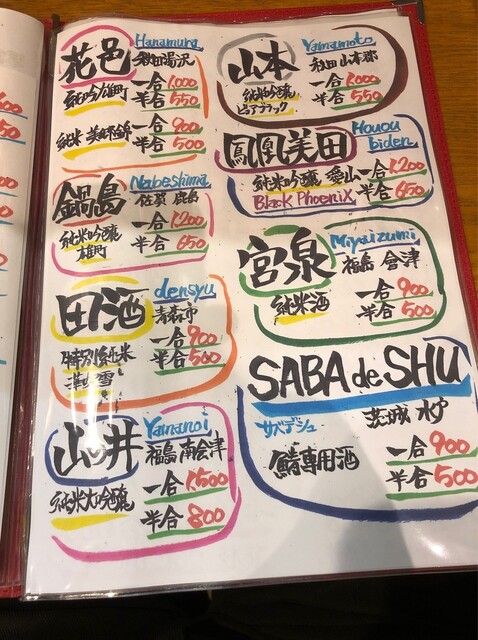 花邑
Hanamura
秋田湯沢
純吟 雄町
一合 1,000
半合 550
純米 美郷錦
一合 900
半合 500
鍋島
Nabeshima
佐賀 鹿島
純米吟醸
雄町
一合 1,200
半合 650
田酒
densyu
青森市
特別純米
一合 900
半合 500
山の井
Yamanoi
福島 南会津
純米大吟醸
一合 1,500
半合 800
山本
Yamamoto
秋田 山本郡
純米吟醸
ピュアブラック
一合 1,000
半合 550
鳳凰美田
Houou
biden
純米吟醸 愛山
Black Phoenix
一合 1,200
半合 650
宮泉
Miyaizumi
福島 會津
純米酒
一合 900
半合 500
SABA de SHU
サバデシュ
茨城 水戸
鯖専用酒
一合 900
半合 500